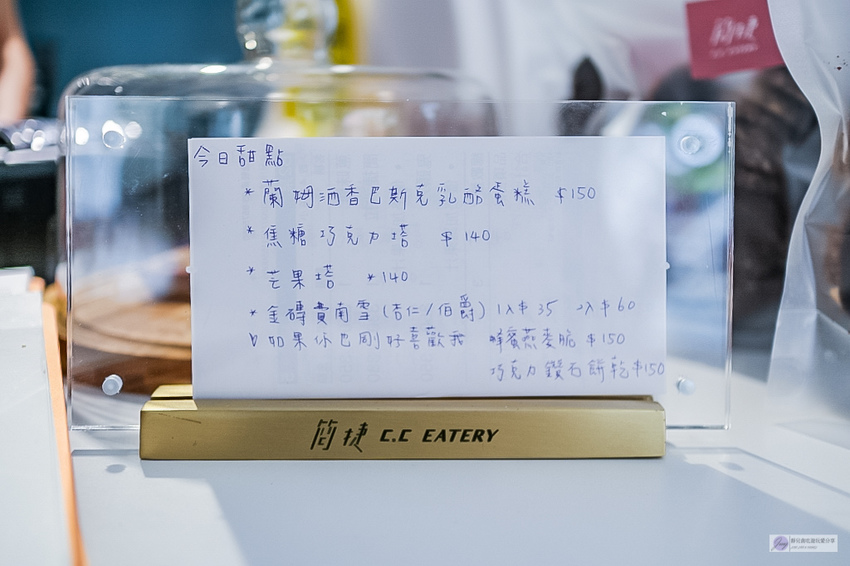 簡捷
C.C EATERY
今日甜點
* 蘭姆酒香巴斯克乳酪蛋糕 $150
* 焦糖巧克力塔 $140
* 芒果塔 *140
* 金磚費南雪 (杏仁/伯爵) 1入$35 2入$60
♡ 如果你也剛好喜歡我 蜂蜜燕麥脆 $150
巧克力鑽石餅乾 $150
簡捷 C.C EATERY